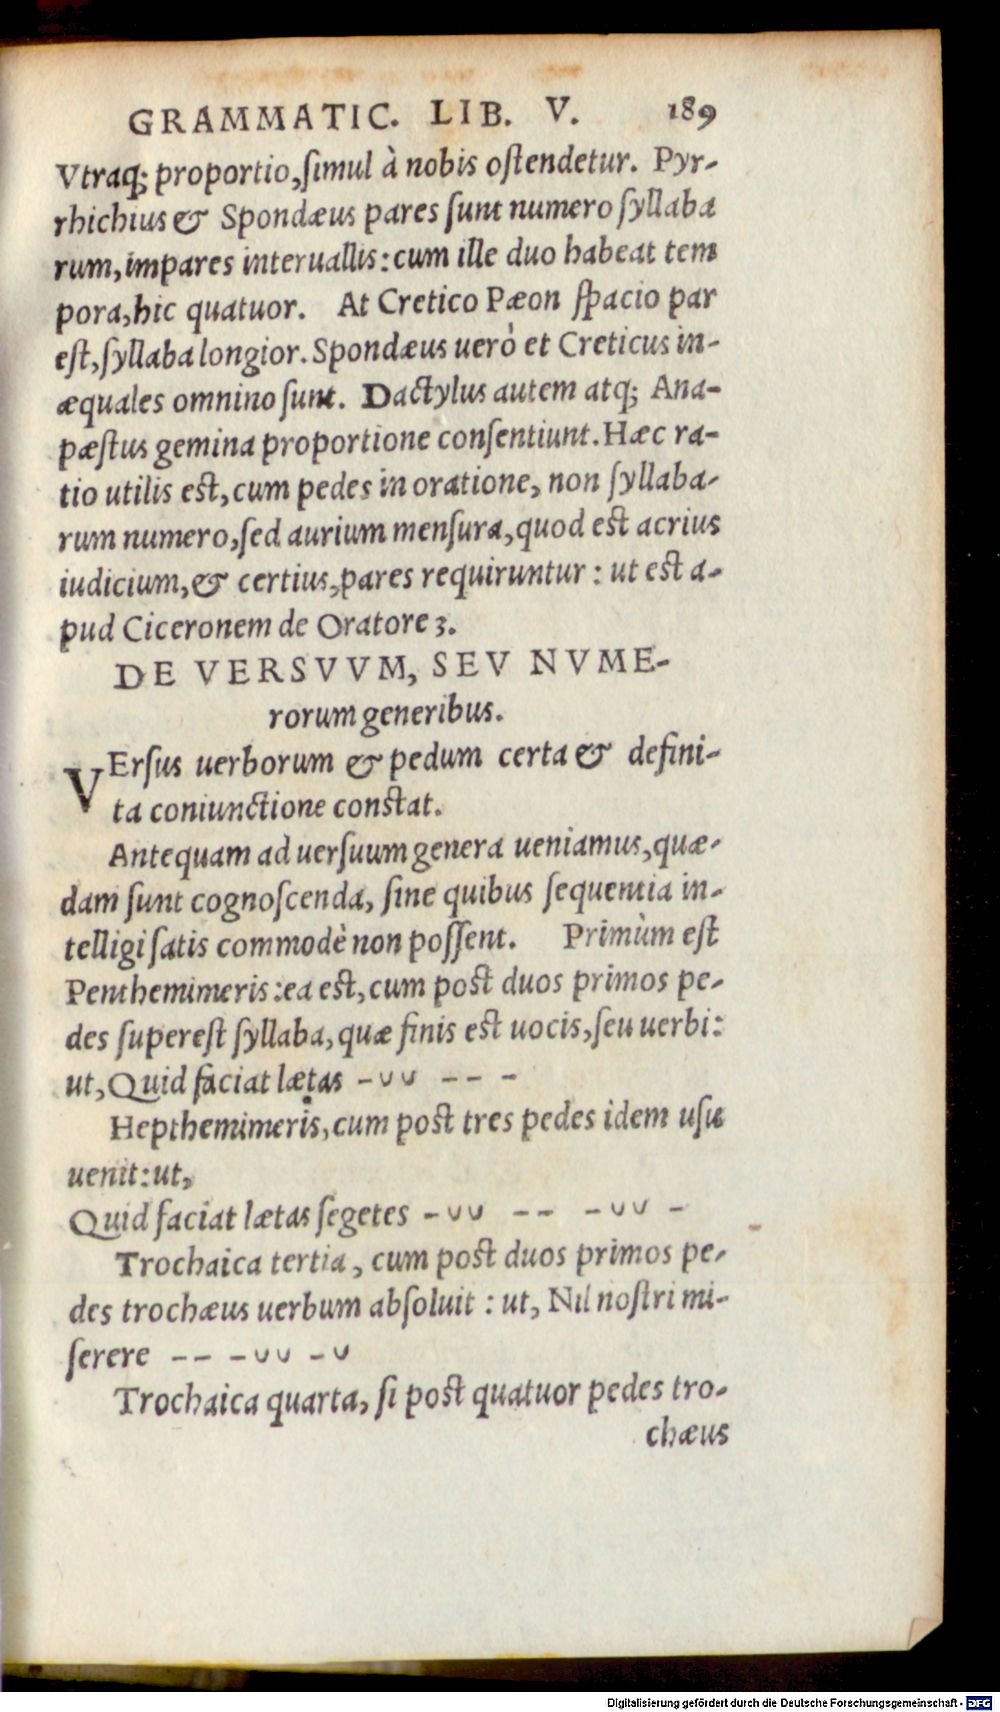 GRAMMATIC. LIB. V. 189
Vtraq; proportio, ſimul à nobis oſtendetur. Pyr-
rhichius & Spondæus pares ſunt numero ſyllaba
rum, impares interuallis: cum ille duo habeat tem
pora, hic quatuor. At Cretico Pæon ſpacio par
eſt, ſyllaba longior. Spondæus uerò et Creticus in-
æquales omnino ſunt. Dactylus autem atq; Ana-
pæſtus gemina proportione conſentiunt. Hæc ra-
tio utilis eſt, cum pedes in oratione, non ſyllaba-
rum numero, ſed aurium menſura, quod eſt acrius
iudicium, & certius, pares requiruntur: ut eſt a-
pud Ciceronem de Oratore 3.
DE VERSVVM, SEV NVME-
rorum generibus.
VErſus uerborum & pedum certa & defini-
ta coniunctione conſtat.
Antequam ad uerſuum genera ueniamus, quæ-
dam ſunt cognoſcenda, ſine quibus ſequentia in-
telligi ſatis commodè non poſſent. Primùm eſt
Penthemimeris: ea eſt, cum poſt duos primos pe-
des ſupereſt ſyllaba, quæ finis eſt uocis, ſeu uerbi:
ut, Quid faciat lætas – ∪ ∪ – – –
Hepthemimeris, cum poſt tres pedes idem uſu
uenit: ut,
Quid faciat lætas ſegetes – ∪ ∪ – – – ∪ ∪ –
Trochaica tertia, cum poſt duos primos pe-
des trochæus uerbum abſoluit: ut, Nil noſtri mi-
ſerere – – – ∪ ∪ – ∪
Trochaica quarta, ſi poſt quatuor pedes tro-
chæus
Digitalisierung gefördert durch die Deutsche Forschungsgemeinschaft - DFG